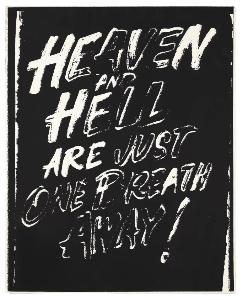 HEAVEN
AND
HELL
ARE JUST
ONE BREATH
AWAY!